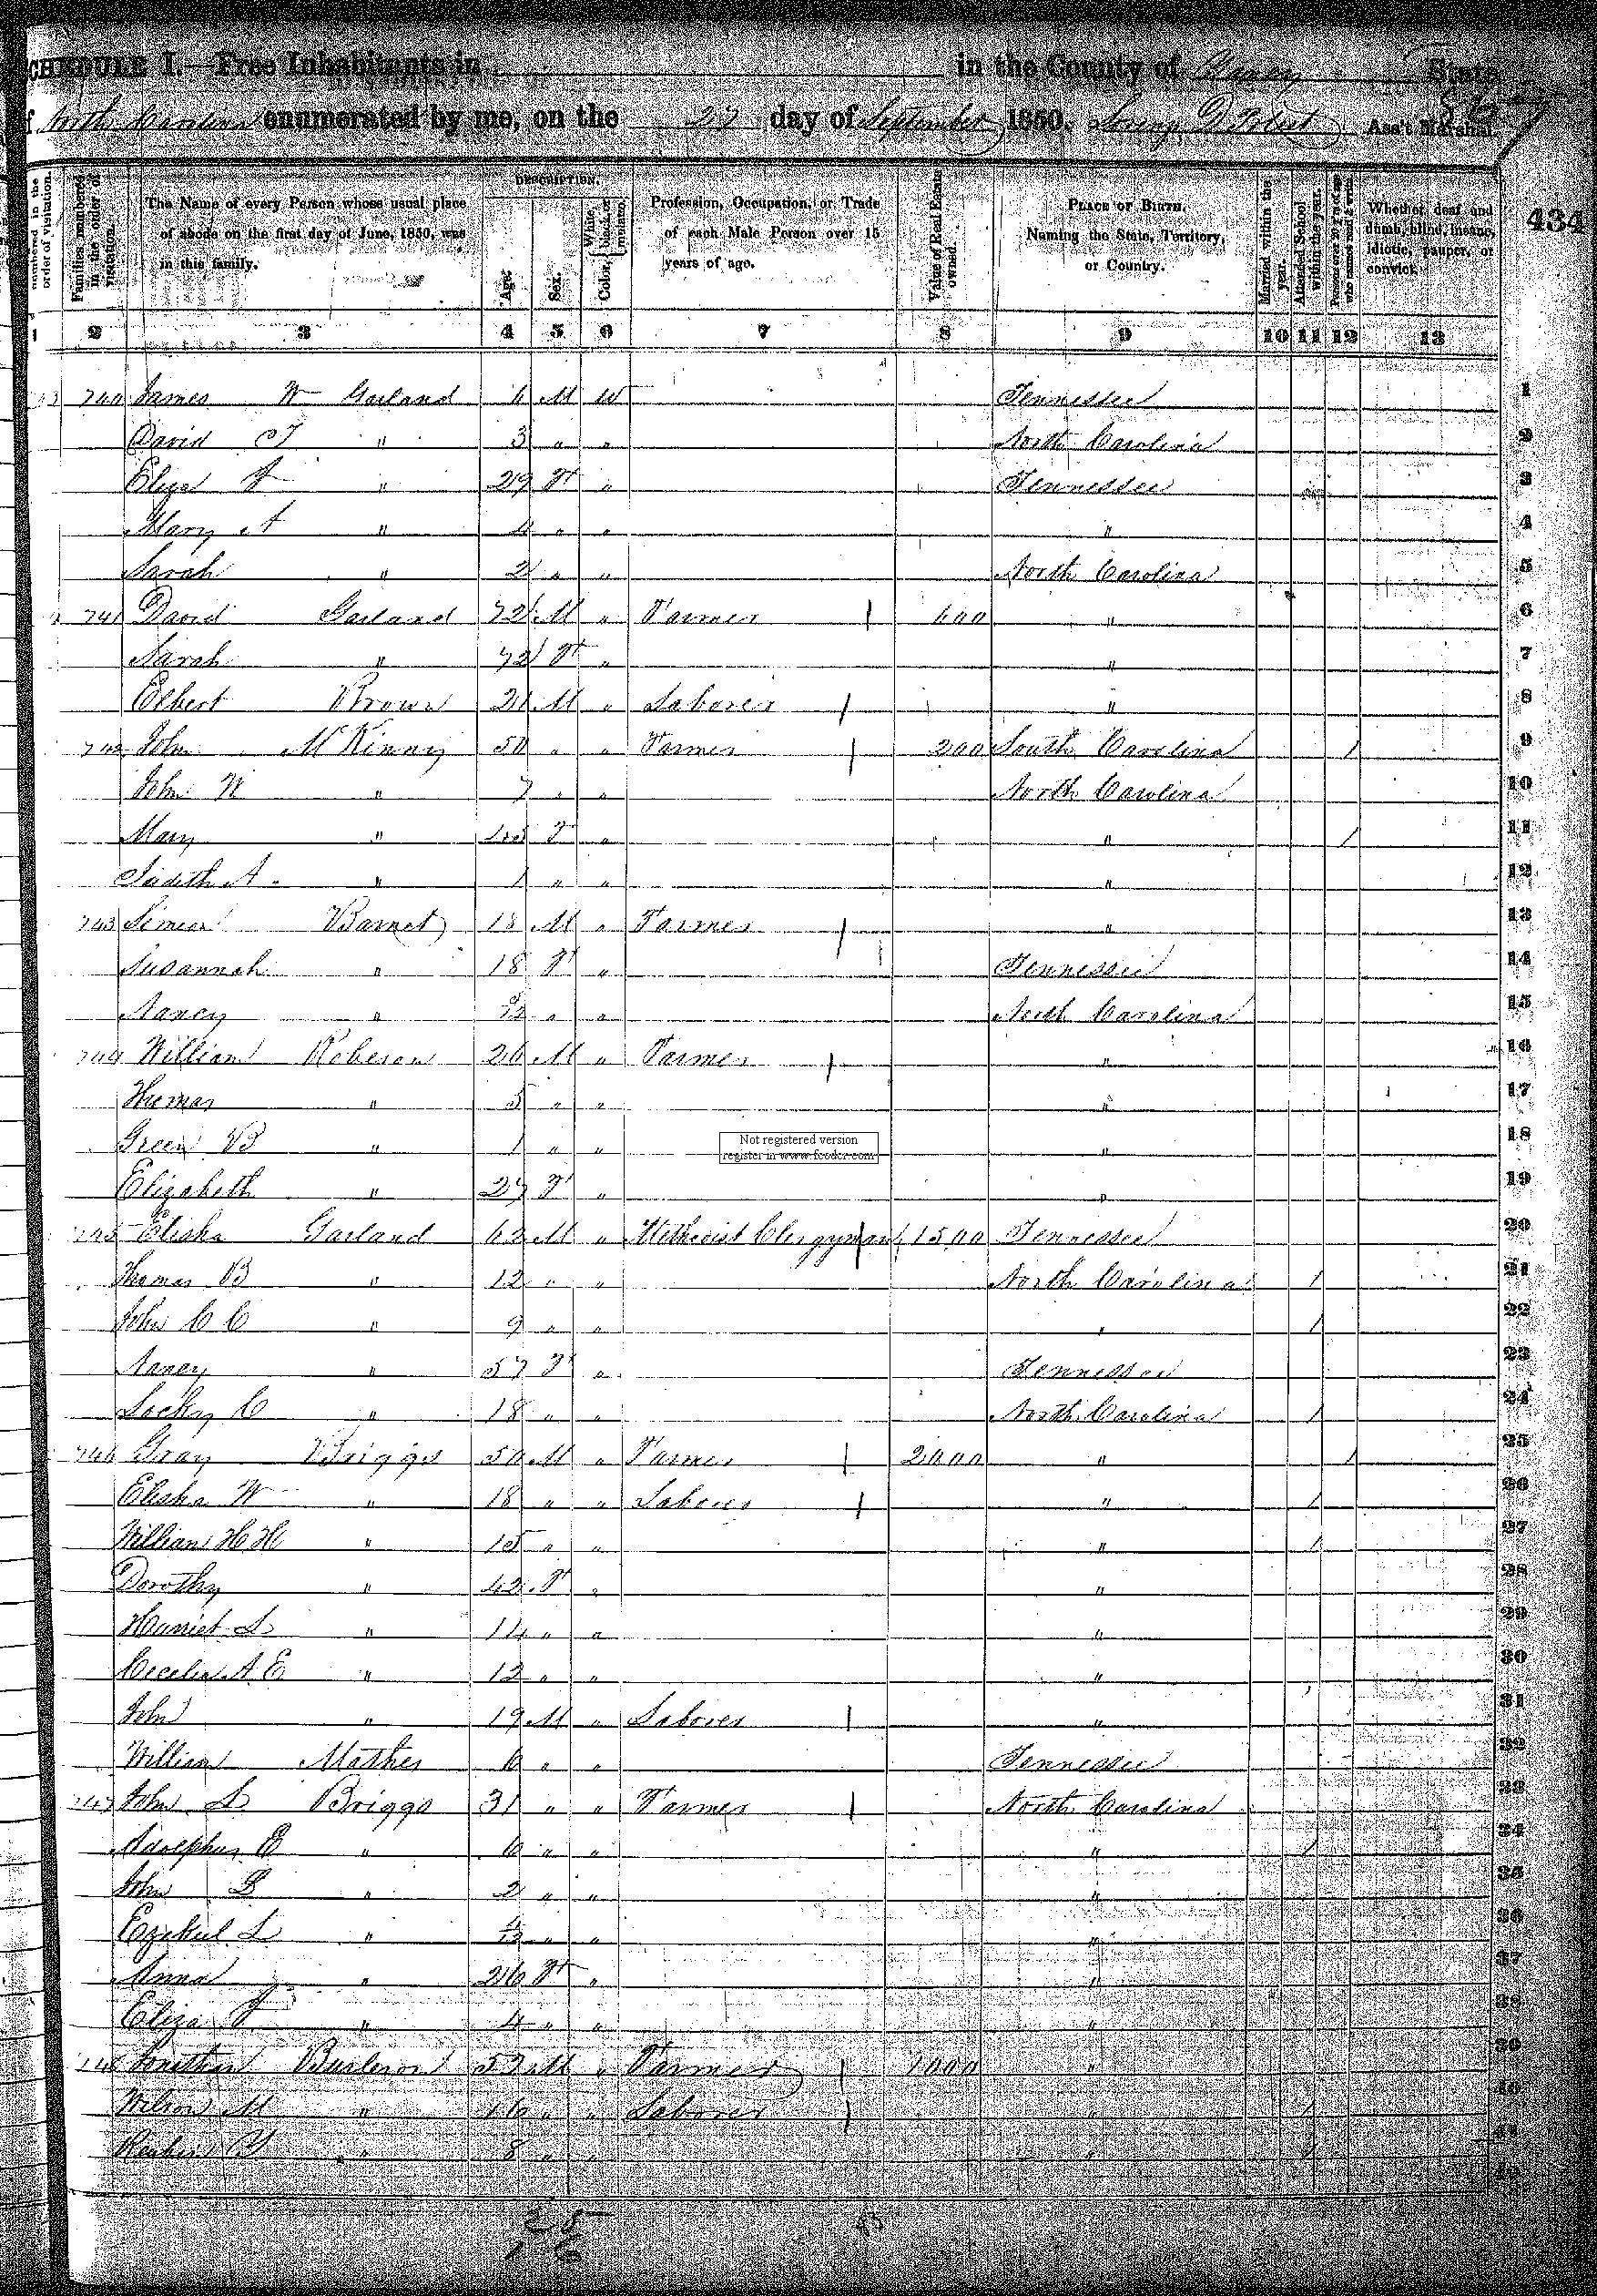 CHEDULE I.—Free Inhabitants in in the County of Yancey State
f North Carolina enumerated by me, on the 27 day of September 1850. Ass't Marshal.
434
numbered in the order of visitation.
Families numbered in the order of visitation.
The Name of every Person whose usual place of abode on the first day of June, 1850, was in this family.
DESCRIPTION.
Age.
Sex.
Color, White, black, or mulatto.
Profession, Occupation, or Trade of each Male Person over 15 years of age.
Value of Real Estate owned.
PLACE OF BIRTH. Naming the State, Territory, or Country.
Married within the year.
Attended School within the year.
Persons over 20 y'rs of age who cannot read & write.
Whether deaf and dumb, blind, insane, idiotic, pauper, or convict.
1 2 3 4 5 6 7 8 9 10 11 12 13
740 James W Garland M W Tennessee 1
David " 3 " " North Carolina 2
Eliza F " 29 F " Tennessee 3
Mary A " 4 " " " 4
Sarah " 2 " " North Carolina 5
741 David Garland 72 M " Farmer 600 " 6
Sarah " 72 F " " 7
Elbert Brown 21 M " Laborer " 8
742 John McKinny 50 " " Farmer 200 South Carolina / 9
John W " 7 " " North Carolina 10
Mary " F " " / 11
Judith A " 1 " " " 12
743 Simeon Barnet 18 M " Farmer " 13
Susannah " 18 F " Tennessee 14
Nancy " " " North Carolina 15
744 William Roberson 26 M " Farmer " 16
Thomas " 5 " " " 17
Green B " 1 " " " 18
Not registered version
register in www.fcoder.com
Elizabeth " 27 F " " 19
745 Elisha Garland 62 M " Methodist Clergyman 1500 Tennessee 20
Thomas B " 12 " " North Carolina / 21
John C C " 9 " " " / 22
Nancy " 57 F " Tennessee 23
Locky C " 18 " " North Carolina / 24
746 Gray Briggs 50 M " Farmer 2000 " / 25
Elisha W " 18 " " Laborer " / 26
William H H " 15 " " " / 27
Dorothy " 42 F " " 28
Harriet L " 14 " " " 29
Cecelia A E " 12 " " " 30
John " 19 M " Laborer " 31
William Mathes " " Tennessee 32
747 John L Briggs 31 " " Farmer North Carolina 33
Adolphus E " " " " / 34
John B " 2 " " " 35
Ezekiel L " 4/12 " " " 36
Anna " 26 F " " 37
Eliza F " 4 " " " 38
748 Burleson M " Farmer 1000 " 39
Wilson M " 16 " " Laborer " / 40
Reuben " 8 " " " / 41
42